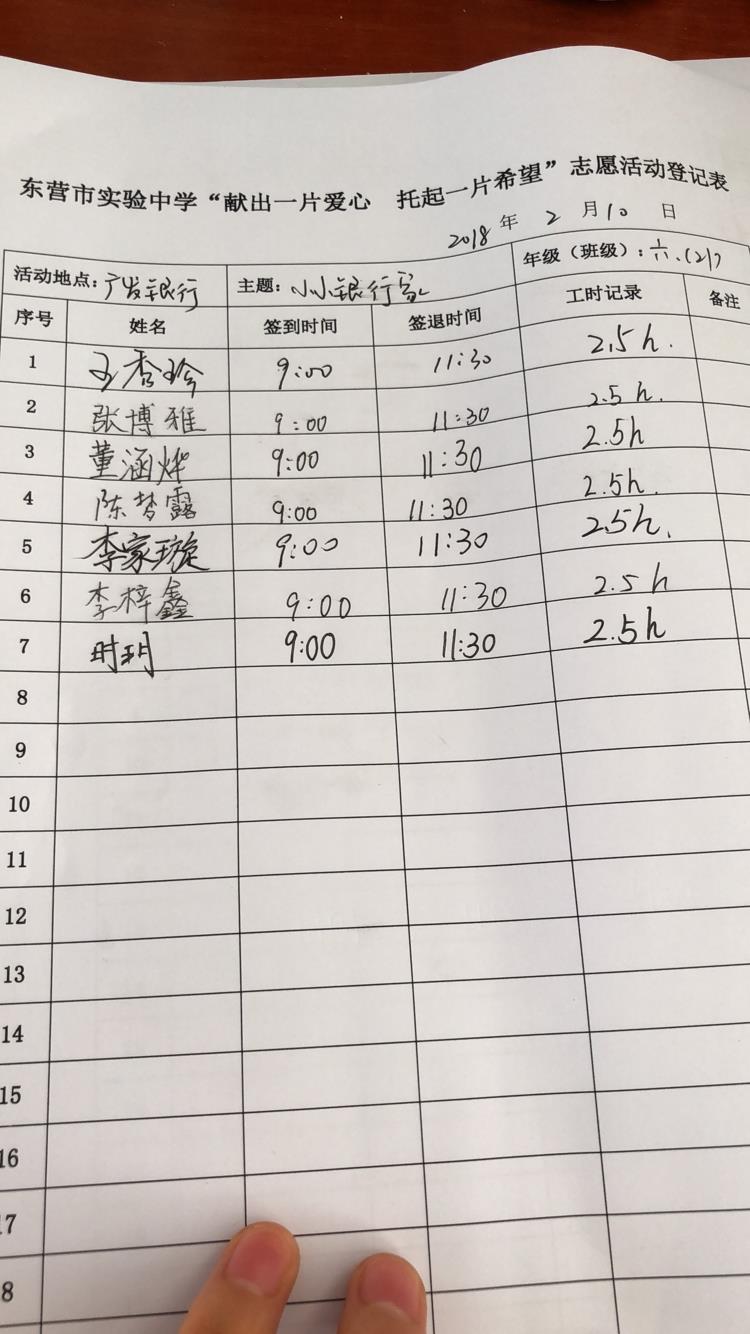 东营市实验中学“献出一片爱心 托起一片希望”志愿活动登记表
2018 年 2 月 10 日
活动地点：广发银行 主题：小小银行家 年级（班级）：六.(2)
序号 姓名 签到时间 签退时间 工时记录 备注
1 王香珍 9:00 11:30 2.5h.
2 张博雅 9:00 11:30 2.5h.
3 董涵烨 9:00 11:30 2.5h
4 陈梦露 9:00 11:30 2.5h.
5 李家璇 9:00 11:30 2.5h.
6 李梓鑫 9:00 11:30 2.5h
7 时玥 9:00 11:30 2.5h
8
9
10
11
12
13
14
15
16
17
8